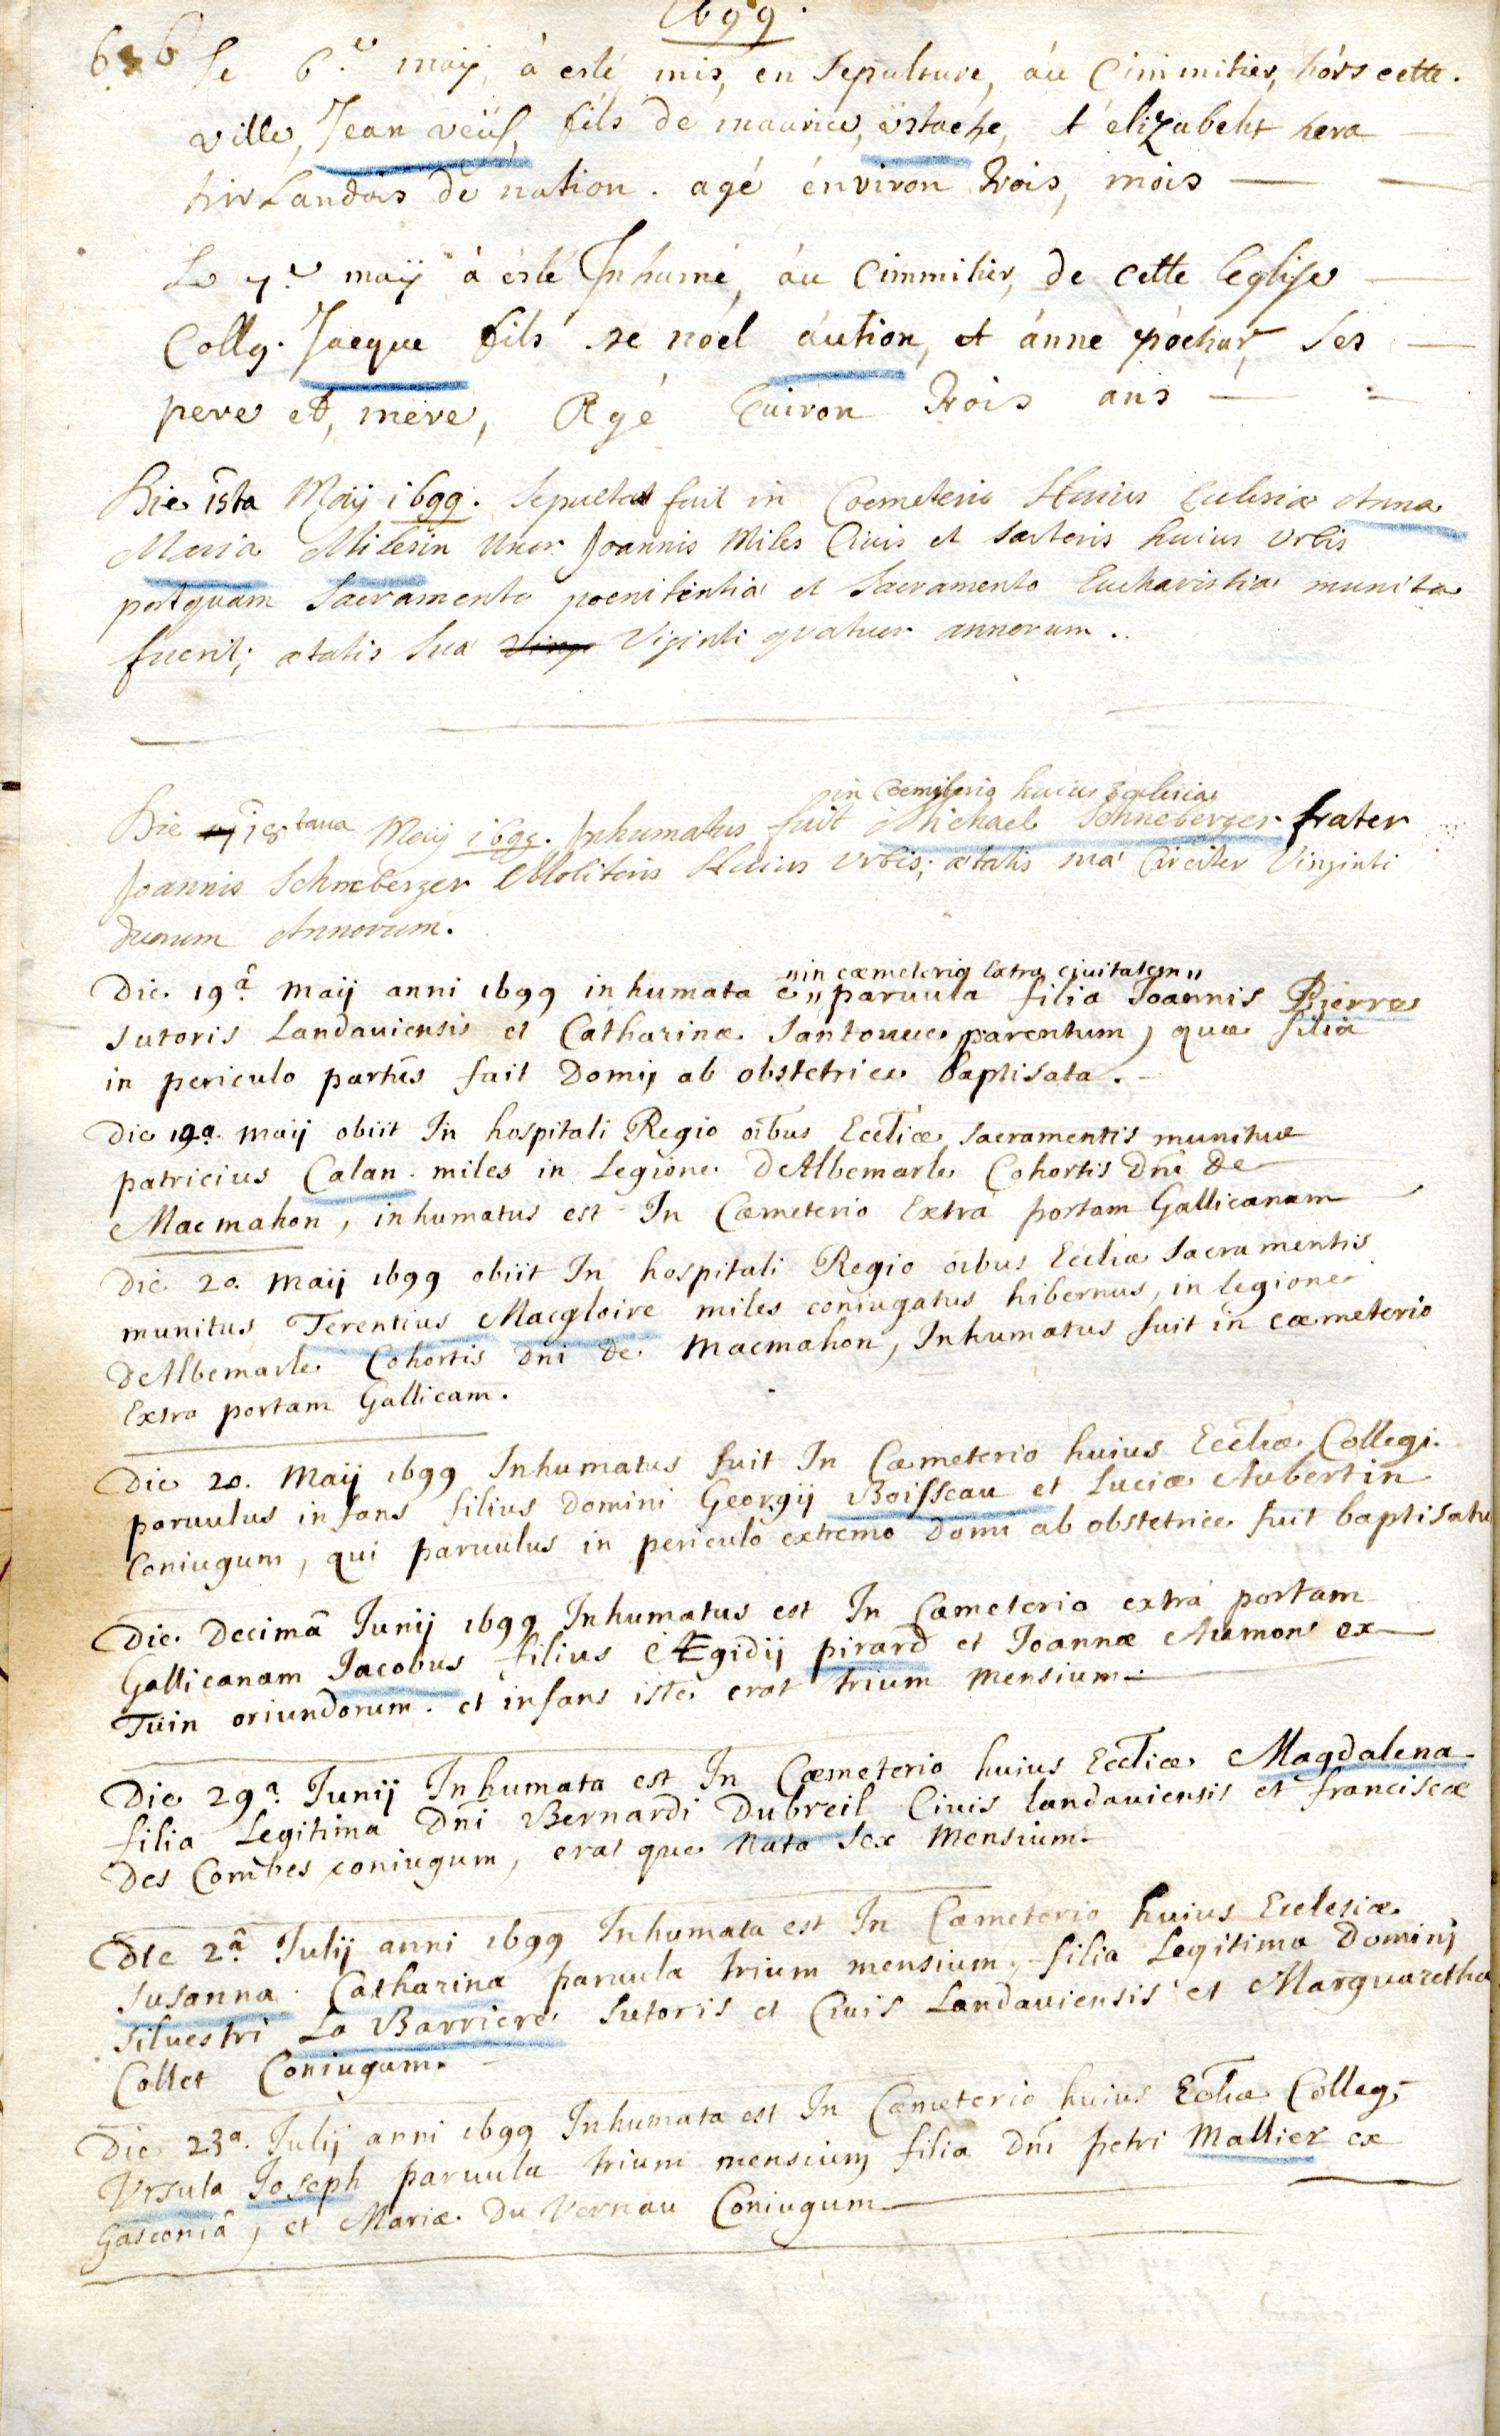 1699.
636
Le 6.e maÿ, à esté mis, en Sepulture, áu Cimmitier, hórs cette.
ville, Jean veüf, fils dé maurice, ëstache, et élizabeht hera
hirLandois dé nation. agé énviron trois, mois
Le 7.e maÿ à ésté Inhumé, áu Cimmitier, de cette leglise
Collg. Jacque fils de nóel áution, et ánne póchar, ses
pere et, mere, Agé Environ trois ans
Die ista Maij 1699. Sepulta fuit in Coemeterio Huius Ecclesiæ Anna
Maria Milesin Uxor Joannis Miles Ciuis et sartoris huius Urbis
postquam Sacramento poenitentiæ et Sacramento Eucharistiæ munita
fuerit; ætatis suæ Viginti quatuor annorum.
in Coemiterio huius Ecclesiæ
Die 18tava Maij 1699. Inhumatus fuit Michael Schneberger frater
Joannis Schneberger Molitoris Huius Urbis; ætatis suæ Circiter Vinginti
duorum Annorum.
"in cæmeterio Extra ciuitatem"
Die 19ª maij anni 1699 inhumata e" paruula filia Joannis Bierre
sutoris Landauiensis et Catharinæ Santonne parentum, quæ filia
in periculo partûs fuit Domi, ab obstetrice baptisata.
Die 19ª maij obiit In hospitali Regio oibus Eccliæ sacramentis munitus
patricius Calan miles in Legione DeAlbemarle Cohortis Dni De
Macmahon, inhumatus est In Cæmeterio Extra portam Gallicanam
Die 20. maij 1699 obiit In hospitali Regio oibus Eccliæ Sacramentis
munitus Terentius Macgloire miles coniugatus hibernus, in legione
DeAlbemarle Cohortis Dni De Macmahon, Inhumatus fuit in cæmeterio
Extra portam Gallicam.
Die 20. Maij 1699 Inhumatus fuit In Cæmeterio huius Eccliæ Collegi.
paruulus infans filius Domini Georgij Boisseau et Luciæ Aubertin
Coniugum, qui paruulus in periculo extremo Domi ab obstetrice fuit baptisatu
Die Decimâ Junij 1699 Inhumatus est In Cæmeterio extrà portam
Gallicanam Jacobus filius Ægidij pirard et Joannæ Aumon ex
Tüin oriundorum. et infans iste erat trium mensium.
Die 29ª. Junij Inhumata est In Cæmeterio huius Eccliæ Magdalena
filia Legitima Dni Bernardi Dubreil Ciuis landauiensis et franciscæ
Des Combes coniugum, erat que nata sex mensium.
Die 2ª Julij anni 1699 Inhumata est In Cæmeterio huius Ecclesiæ
Susanna Catharina paruula trium mensium, filia Legitima Dominj
Siluestri La Barriere Sutoris et Ciuis Landauiensis et Marguaretha
Collet Coniugum.
Die 23ª. Julij anni 1699 Inhumata est In Cæmeterio huius Eccliæ Colleg,
Vrsula Joseph paruula trium mensium filia Dni petri Mallier ex
Gasconiâ, et Mariæ Du Vernau Coniugum